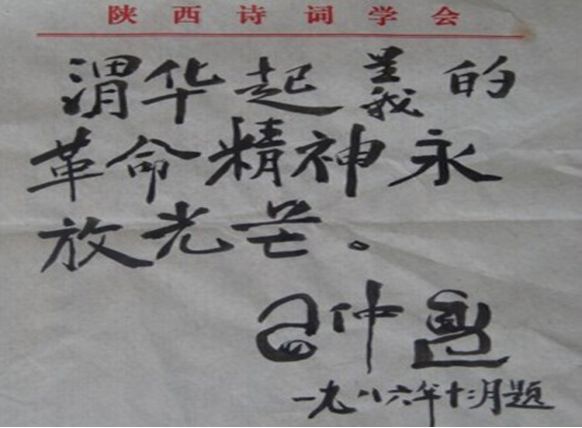 陕西诗词学会
渭华起义的
革命精神永
放光芒。
习仲勋
一九八六年十二月题